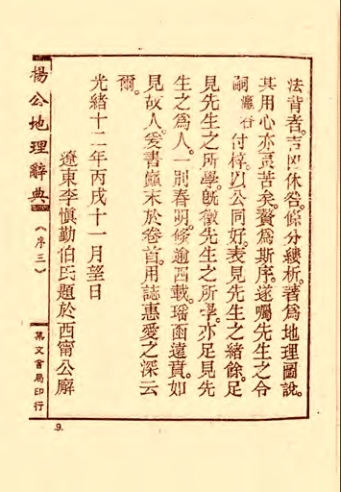 法背者。吉凶休咎。條分縷析。著為地理圖說。
其用心亦良苦矣。爰為斯序。遂囑先生之令
嗣濂谷付梓。以公同好。表見先生之緒餘。足
見先生之所學。既徵先生之所學。亦足見先
生之為人。一別春明。倏逾四載。瑤函遠賁。如
見故人。爰書顛末於卷首。用誌惠愛之深云
爾。
光緒十二年丙戌十一月望日
遼東李慎勤伯氏題於西甯公廨
楊公地理辭典
(序三)
文書局印行
9.